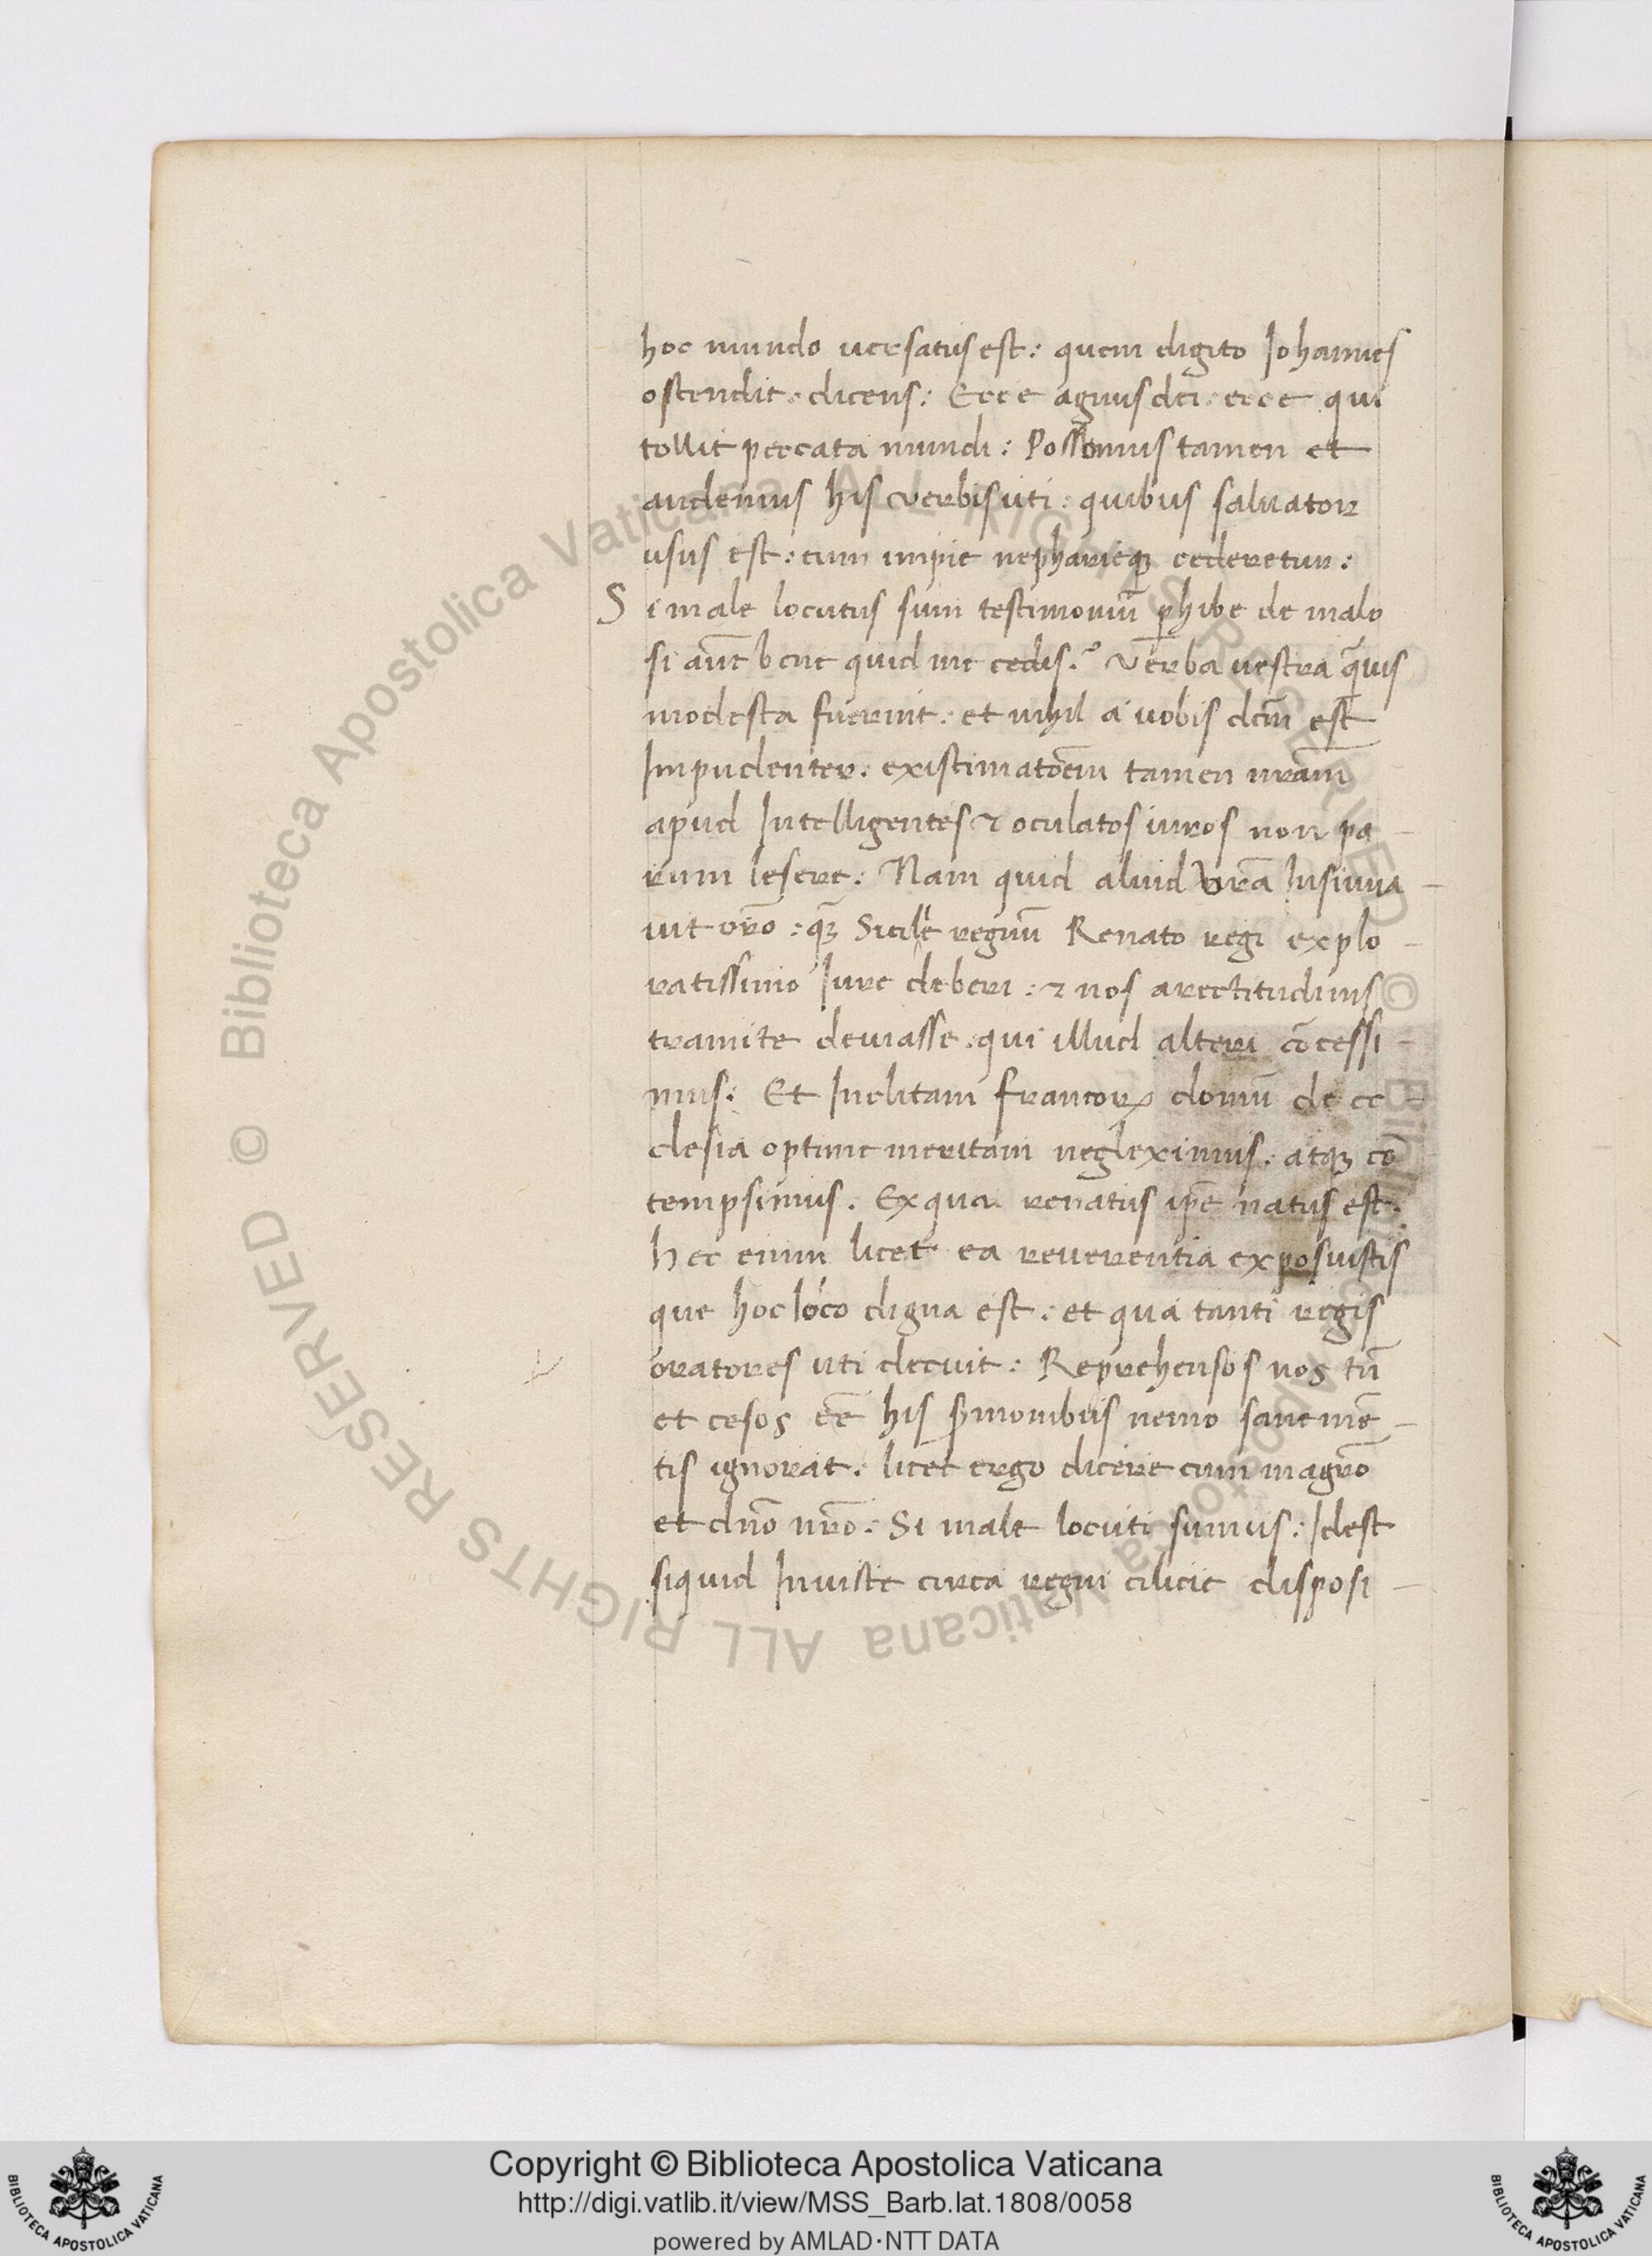 hoc mundo uersatus est: quem digito Johannes
ostendit. dicens: Ecce agnus dei. ecce qui
tollit peccata mundi: Possumus tamen et
audemus his verbis uti: quibus saluator
usus est: cum impie nepharieqꝫ cederetur:
Si male locutus sum testimoniū ꝑhibe de malo
si aūt bene quid me cedis? Verba uestra q̄uis
modesta fuerint. et nihil a uobis dcm̄ est
Impudenter. existimatōem tamen nrām
apud Intelligentes ⁊ oculatos uiros non pa
rum lesere. Nam quid aliud vrā Insinua
uit orō: qꝫ Sicilie regnū Renato regi explo
ratissimo Jure deberi: ⁊ nos a rectitudinis
tramite deuiasse. qui illud alteri cōcessi
mus. Et Inclitam francoꝝ domū de ec
clesia optime meritam negleximus. atqꝫ cō
tempsimus. Ex qua renatus ip̄e natus est.
Hec enim licet ea reuerentia exposuistis
que hoc loco digna est. et qua tanti regis
oratores uti decuit: Reprehensos nos tn̄
et cesos eē his ẜmonibus nemo sane mē
tis ignorat. licet ergo dicere cum magrō
et dnō nrō. Si male locuti sumus. Idest
siquid Iniuste circa regni cilicie disposi
Copyright © Biblioteca Apostolica Vaticana
http://digi.vatlib.it/view/MSS_Barb.lat.1808/0058
powered by AMLAD·NTT DATA
BIBLIOTECA APOSTOLICA VATICANA
BIBLIOTECA APOSTOLICA VATICANA
© Biblioteca Apostolica Vaticana ALL RIGHTS RESERVED
© Biblioteca Apostolica Vaticana ALL RIGHTS RESERVED